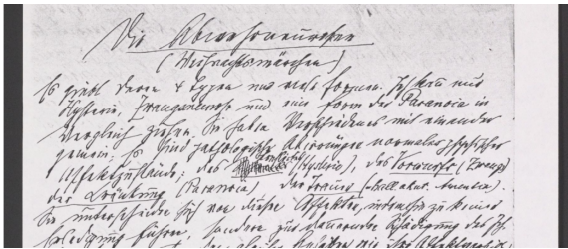 Die Abwehrneurosen
(Weihnachtsmärchen)
Es giebt deren 4 Typen und viele Formen. Ich kann nur
Hysterie, Zwangsneurose und eine Form der Paranoia in
Vergleich ziehen. Sie haben Verschiedenes mit einander
gemein. Es sind pathologische Abirrungen normaler psychischer
Affektzustände: des Conflictes (Hysterie), des Vorwurfs (Zwgn)
der Kränkung (Paranoia) der Trauer (Hall. akut. Amentia).
Sie unterscheiden sich von diesen Affekten, daß sie zu keiner
Erledigung führen, sondern zur dauernden Schädigung des Ich.